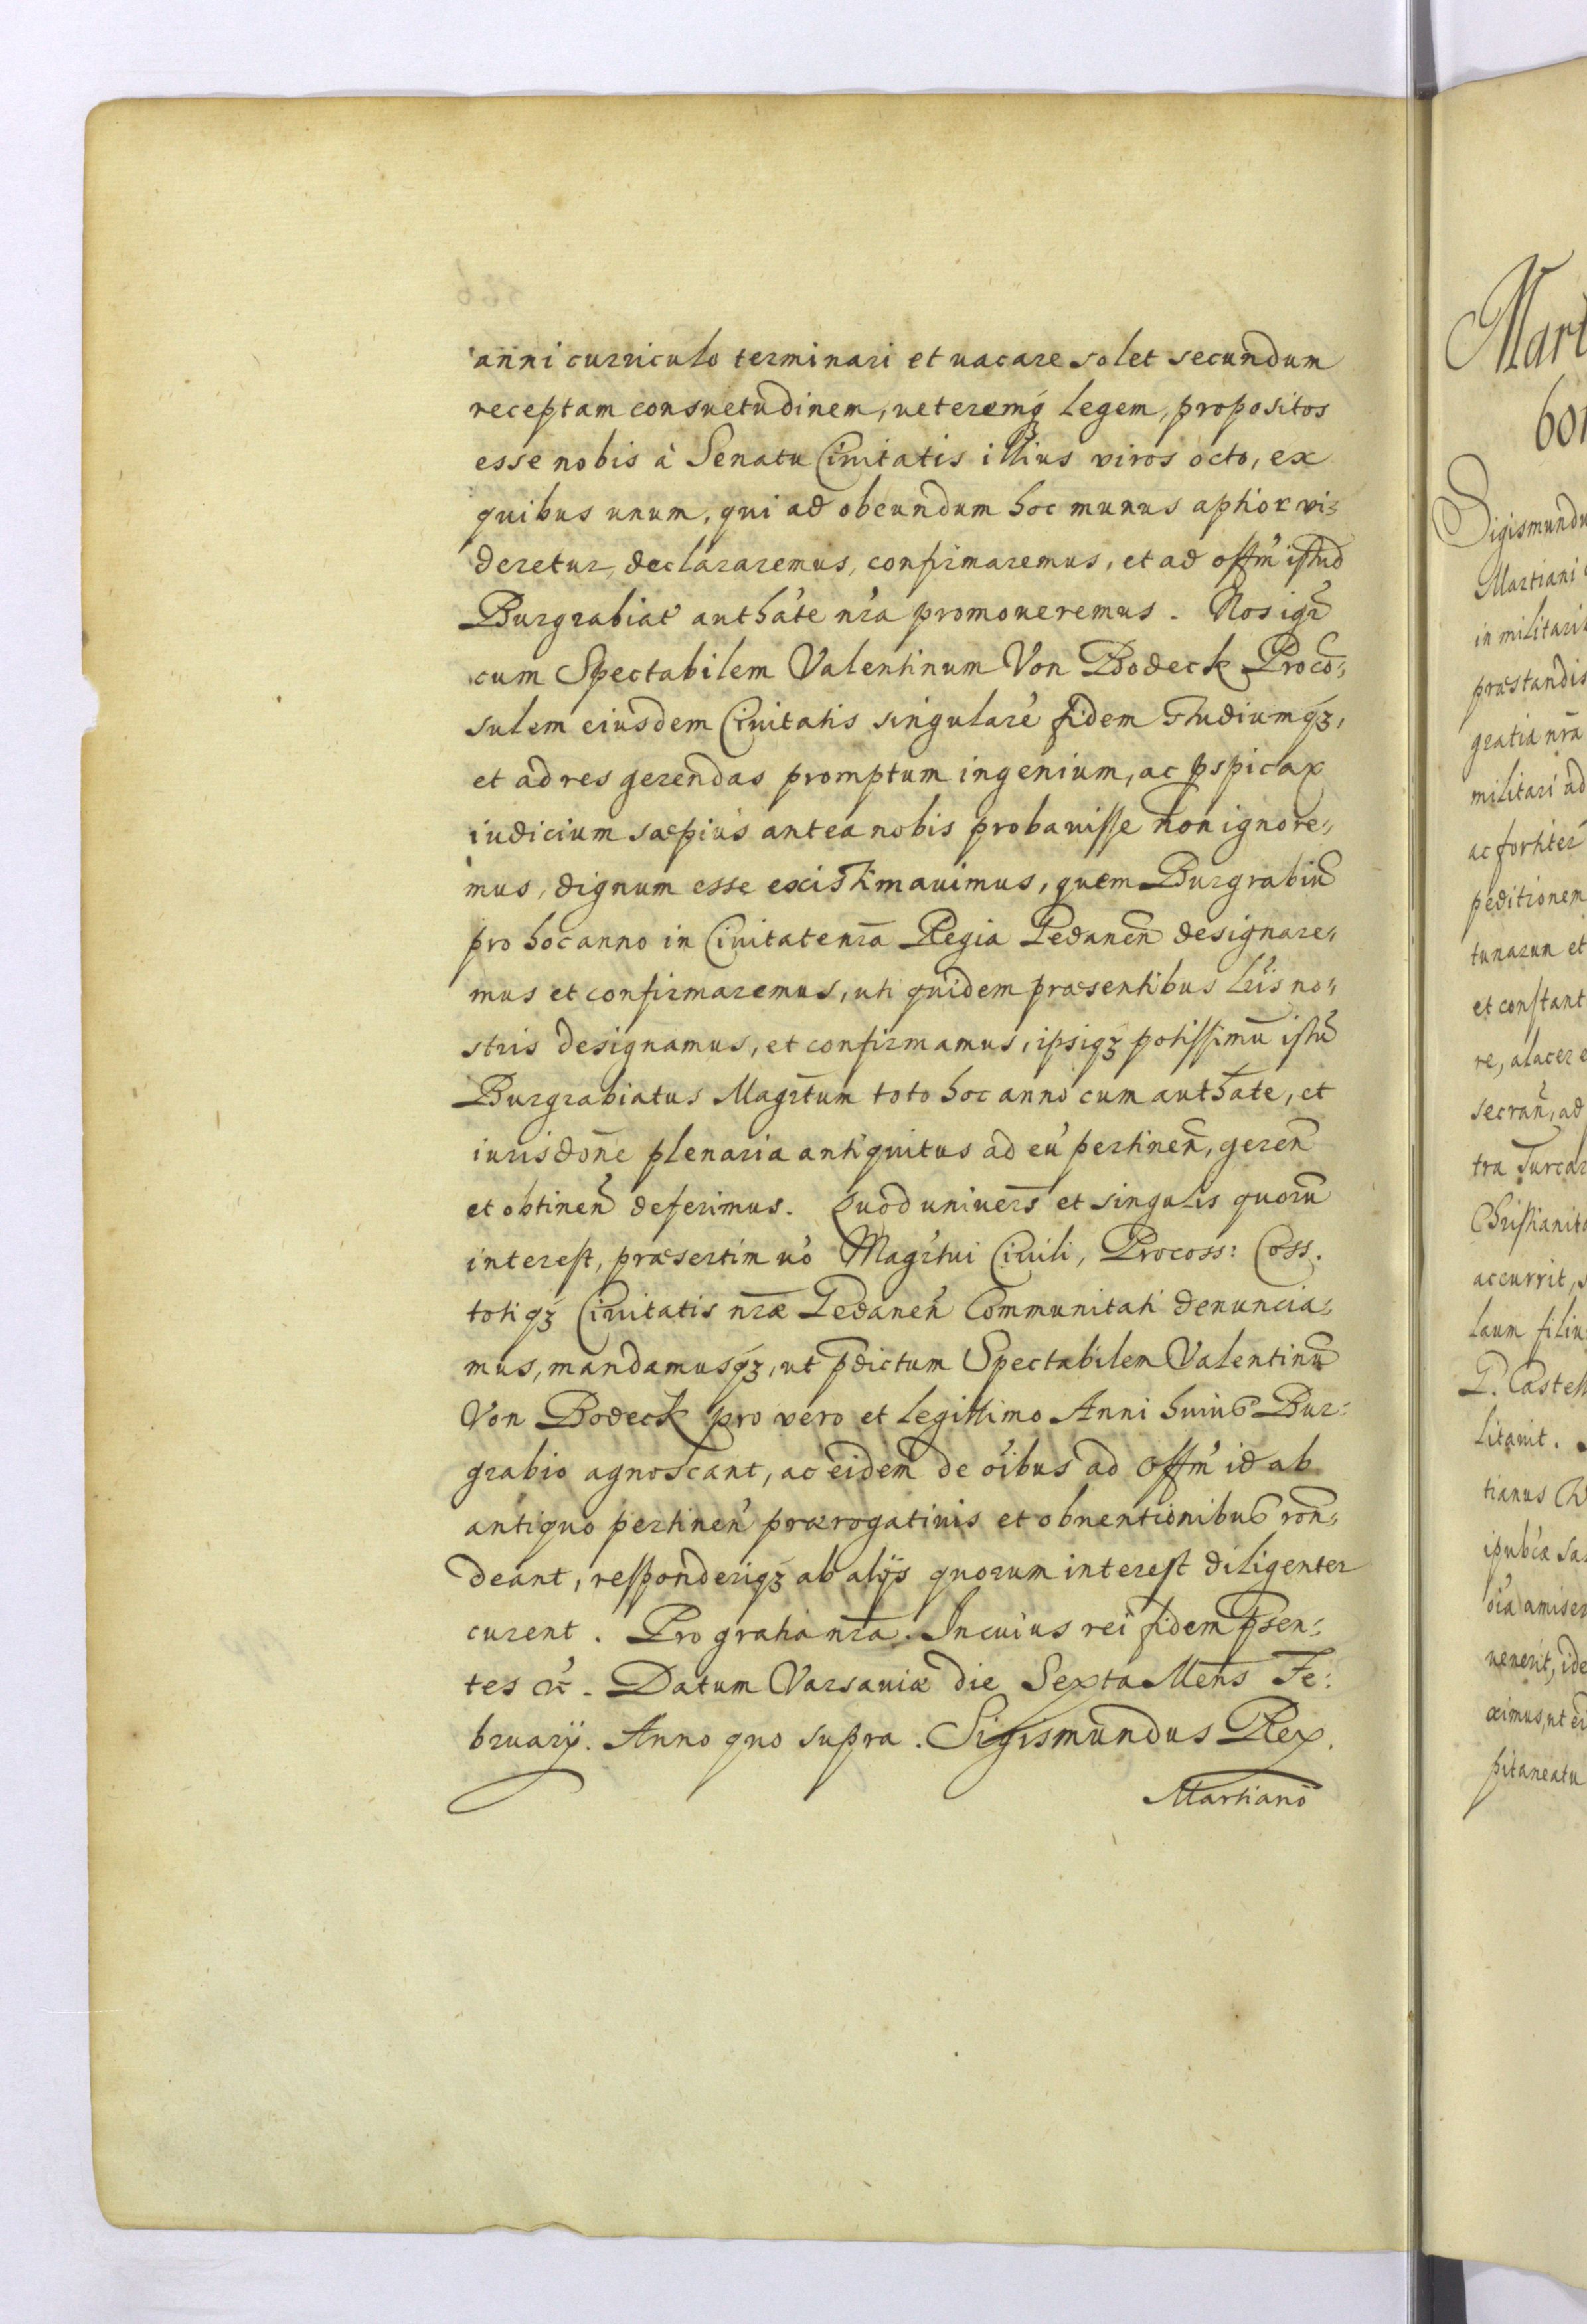 anni curriculo terminari et uacare solet secundum
receptam consuetudinem, ueteremq́ legem, propositos
esse nobis à Senatu Ciuitatis illius viros octo, ex
quibus unum, qui ad obeundum hoc munus aptior vi⸗
deretur, declararemus, confirmaremus, et ad offm̄ istud
Burgrabiat' authāte nr̄a promoueremus. Nos igr̄
cum Spectabilem Valentinum Von Bodeck Procō⸗
sulem eiusdem Ciuitatis singularē fidem studiumqꝫ,
et ad res gerendas promptum ingenium, ac ꝑspicax
iudicium sæpius antea nobis probauisse non ignore⸗
mus, dignum esse existimauimus, quem Burgrabiū
pro hoc anno in Ciuitate nr̄a Regia Gedaneñ designare⸗
mus et confirmaremus, uti quidem præsentibus lr̄is no⸗
stris designamus, et confirmamus, ipsiqꝫ potissimū istū
Burgrabiatus Magr̄tum toto hoc anno cum authāte, et
iurisdōne plenaria antiquitus ad eū pertineñ, gereñ
et obtineñ deferimus. Quod univers̄ et singulis quorū
interest, præsertim uō Magr̄tui Ciuili, Procoss: Coss.
totiqꝫ Ciuitatis nr̄æ Gedaneñ Communitati denuncia⸗
mus, mandamusqꝫ, ut p̄dictum Spectabilem Valentinū
Von Bodeck pro vero et legittimo Anni huius Bur⸗
grabio agnoscant, ac eidem de oībus ad offm̄ id ab
antiquo pertineñ prærogatiuis et obuentionibus roñ⸗
deant, responderiqꝫ ab alijs quorum interest diligenter
curent. Pro gratia nr̄a. In cuius rei fidem p̄sen⸗
tes etc̄. Datum Varsauiæ die Sexta Mens̄ Fe⸗
bruarij. Anno quo supra. Sigismundus Rex.
Martianō
Mart
bon
Sigismundu
Martiani
in militarib
præstandis
gratia nr̄a
militari ad
ac fortiter
peditionem
tunarum et
et constant
re, alacer e
secrañ, ad
tra Turcar
Christianita
accurrit, s
laum filiu
P. Castell
litauit.
tianus W
ipub̄cæ sa
oīa amiser
uenerit, ide
æximus, ut ei
pitaneatu